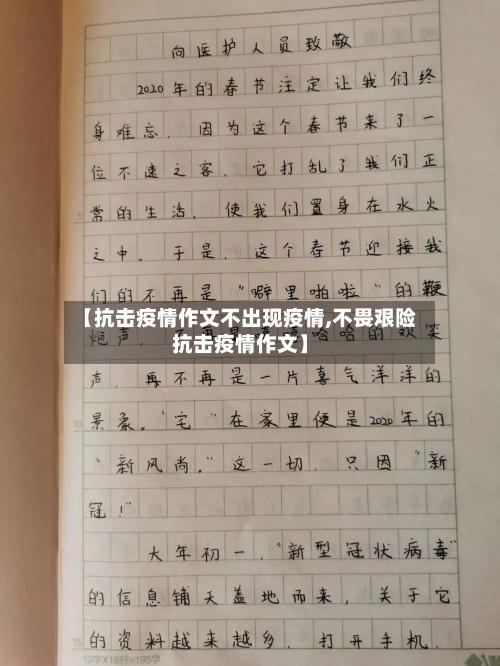 向医护人员致敬
2020年的春节注定让我们终
身难忘.因为这个春节来了一
位不速之客.它打乱了我们正
常的生活.使我们置身在水火
之中.于是.这个春节迎接我
们的不再是“噼里啪啦”的鞭
【抗击疫情作文不出现疫情,不畏艰险
炮声 哈哈的欢笑
抗击疫情作文】
声.再不再是一片喜气洋洋的
景象。“宅”在家里便是2020年的
“新风尚。”这一切.只因“新
冠!”
大年初一,“新型冠状病毒”
的信息铺天盖地而来,关于它
的资料越来越多.打开手机.
13字X15行=195字
5
10
15